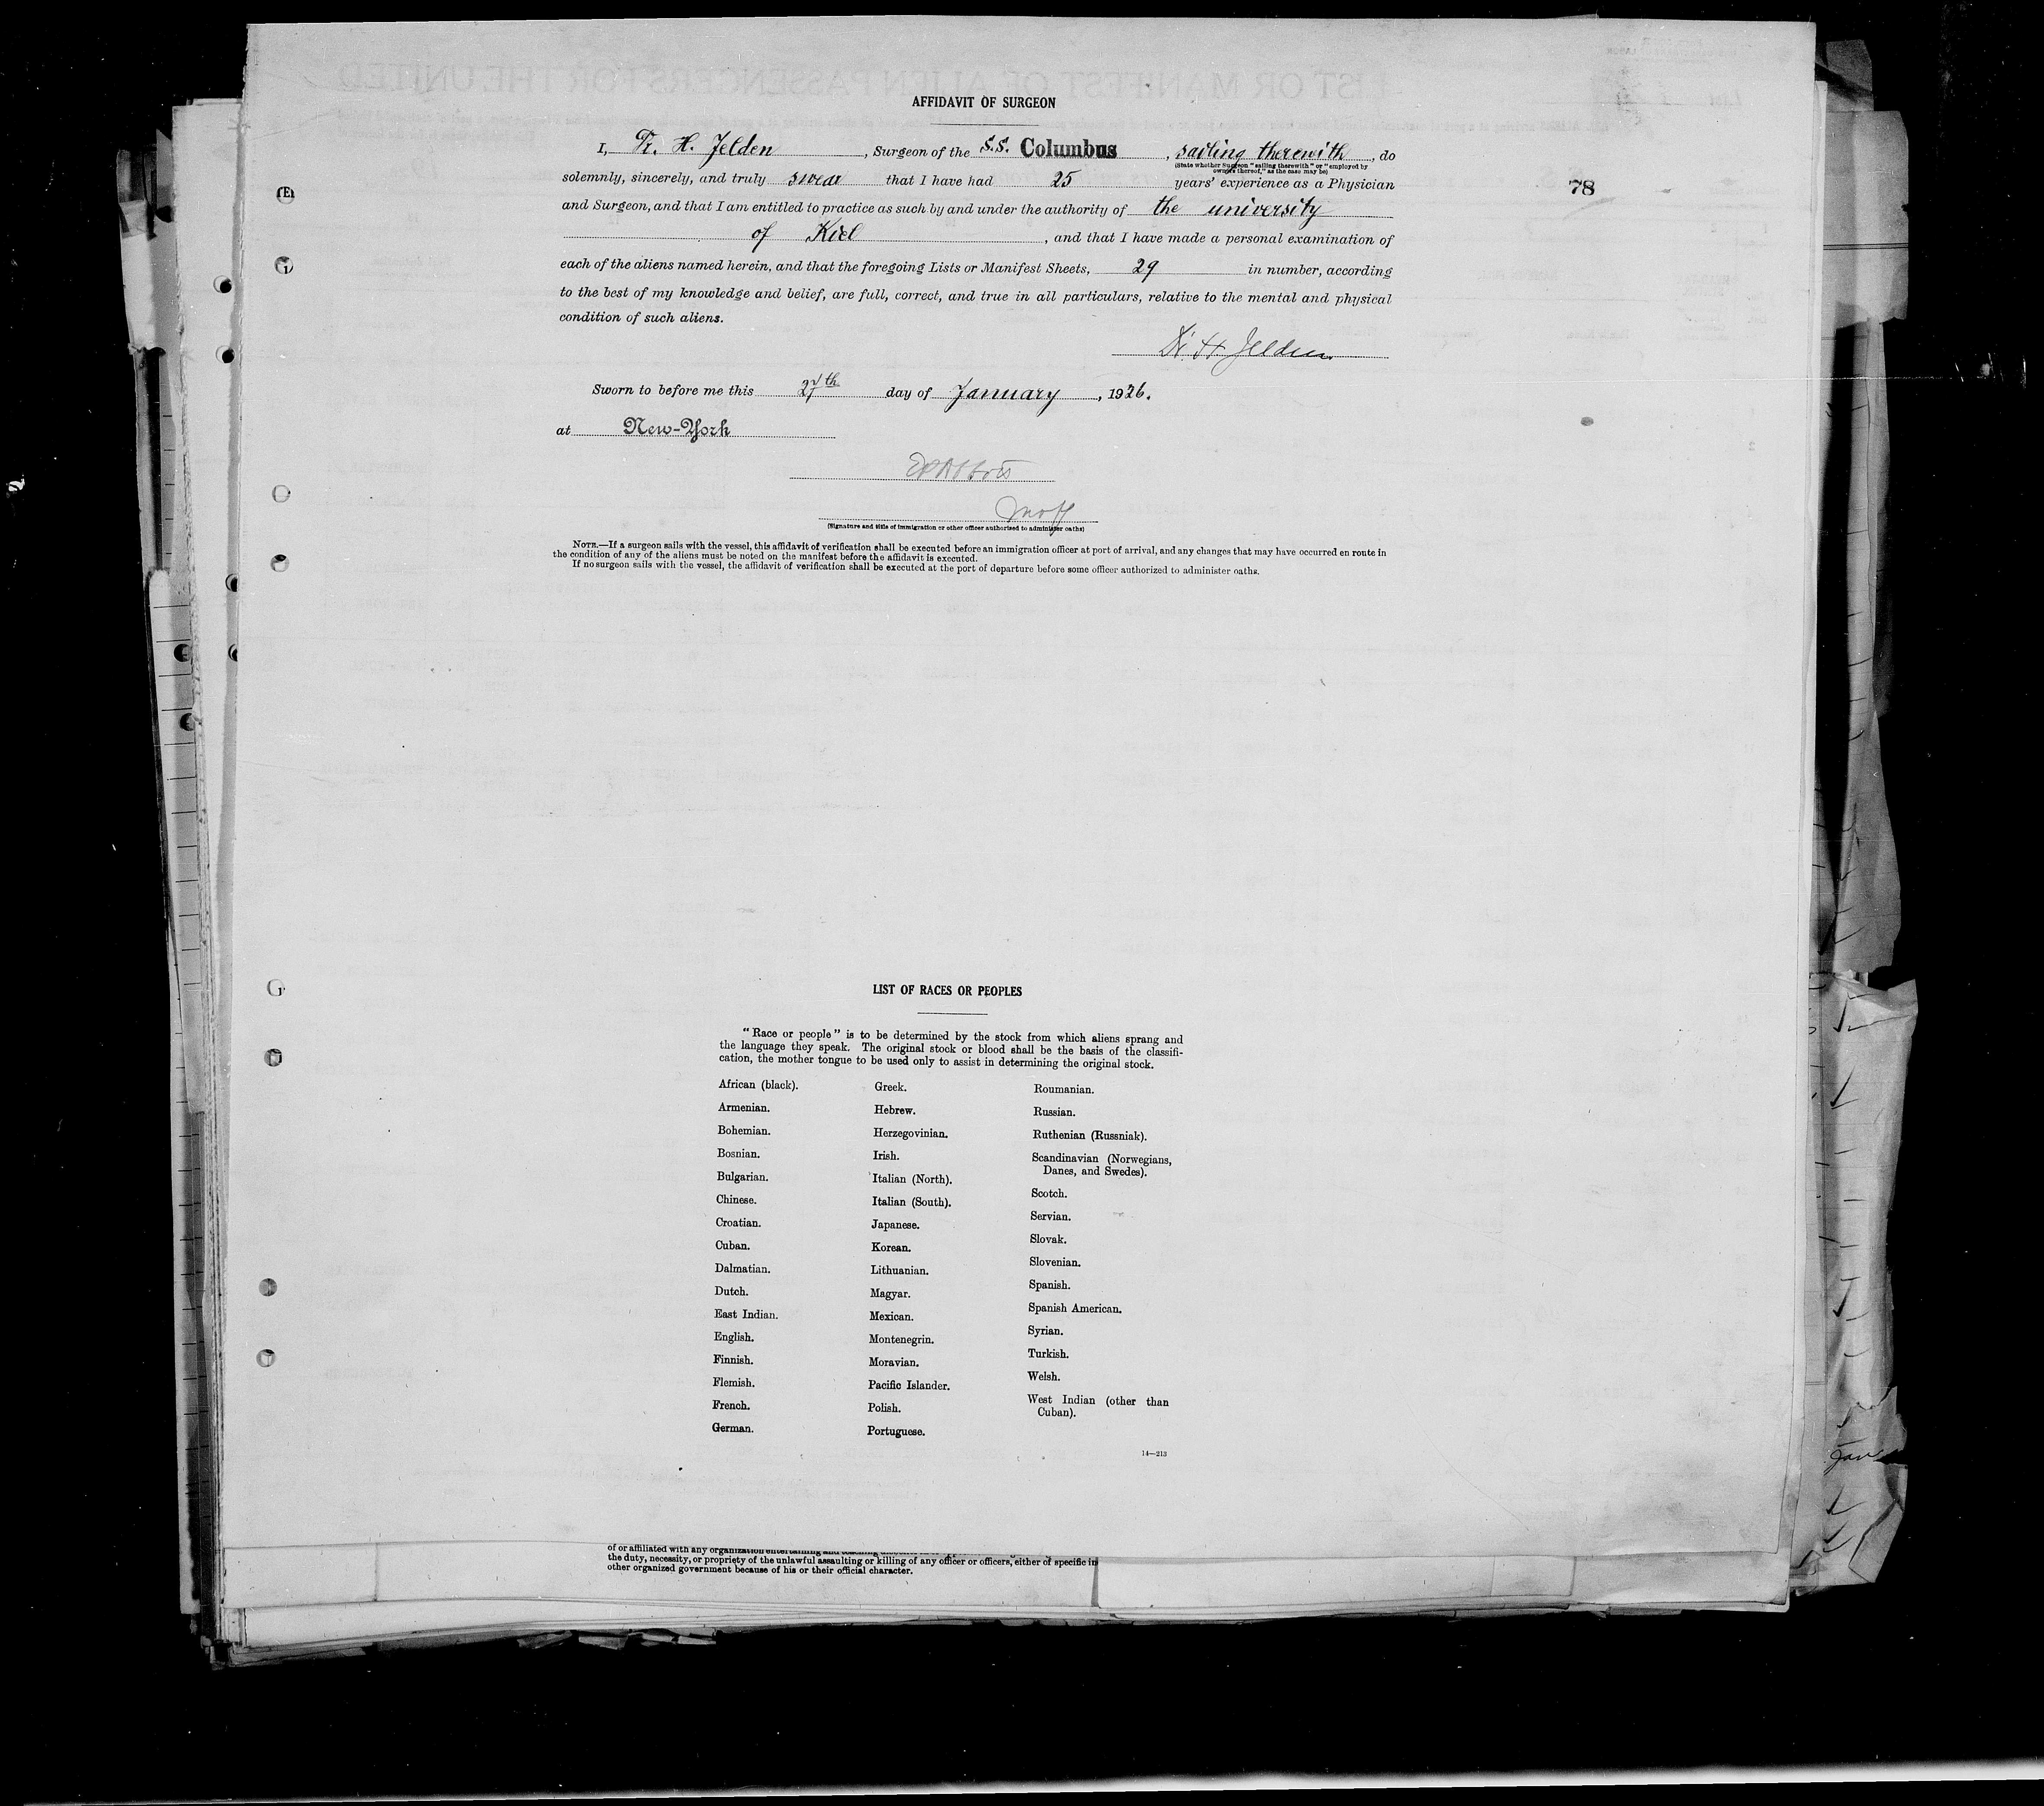 AFFIDAVIT OF SURGEON
I, Dr. H. Jelden, Surgeon of the S.S. Columbus, sailing therewith, do
(State whether Surgeon "sailing therewith" or "employed by
owners thereof," as the case may be)
solemnly, sincerely, and truly swear that I have had 25 years' experience as a Physician
78
and Surgeon, and that I am entitled to practice as such by and under the authority of the university
of Kiel, and that I have made a personal examination of
each of the aliens named herein, and that the foregoing Lists or Manifest Sheets, 29 in number, according
to the best of my knowledge and belief, are full, correct, and true in all particulars, relative to the mental and physical
condition of such aliens.
Dr. H Jelden
Sworn to before me this 27th day of January, 1926.
at New-York
(Signature and title of immigration or other officer authorized to administer oaths)
NOTE.—If a surgeon sails with the vessel, this affidavit of verification shall be executed before an immigration officer at port of arrival, and any changes that may have occurred en route in
the condition of any of the aliens must be noted on the manifest before the affidavit is executed.
If no surgeon sails with the vessel, the affidavit of verification shall be executed at the port of departure before some officer authorized to administer oaths.
LIST OF RACES OR PEOPLES
"Race or people" is to be determined by the stock from which aliens sprang and
the language they speak. The original stock or blood shall be the basis of the classifi-
cation, the mother tongue to be used only to assist in determining the original stock.
African (black).
Armenian.
Bohemian.
Bosnian.
Bulgarian.
Chinese.
Croatian.
Cuban.
Dalmatian.
Dutch.
East Indian.
English.
Finnish.
Flemish.
French.
German.
Greek.
Hebrew.
Herzegovinian.
Irish.
Italian (North).
Italian (South).
Japanese.
Korean.
Lithuanian.
Magyar.
Mexican.
Montenegrin.
Moravian.
Pacific Islander.
Polish.
Portuguese.
Roumanian.
Russian.
Ruthenian (Russniak).
Scandinavian (Norwegians,
Danes, and Swedes).
Scotch.
Servian.
Slovak.
Slovenian.
Spanish.
Spanish American.
Syrian.
Turkish.
Welsh.
West Indian (other than
Cuban).
14—213
of or affiliated with any organization entertaining and teaching
the duty, necessity, or propriety of the unlawful assaulting or killing of any officer or officers, either of specific in
other organized government because of his or their official character.